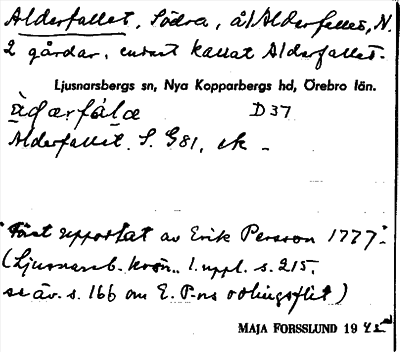 Alderfallet, Södra, å/Alderfallet, N.
2 gårdar, enbart kallat Alderfallet.
Ljusnarsbergs sn, Nya Kopparbergs hd, Örebro län.
D 37
Alderfallet S. G 81, ek
"Först upportat av Erik Persson 1777".
(Ljusnarsb. krön., 1. uppl. s. 215,
se äv. s. 166 om E. P-ns odlingsflit)
MAJA FORSSLUND 19 45